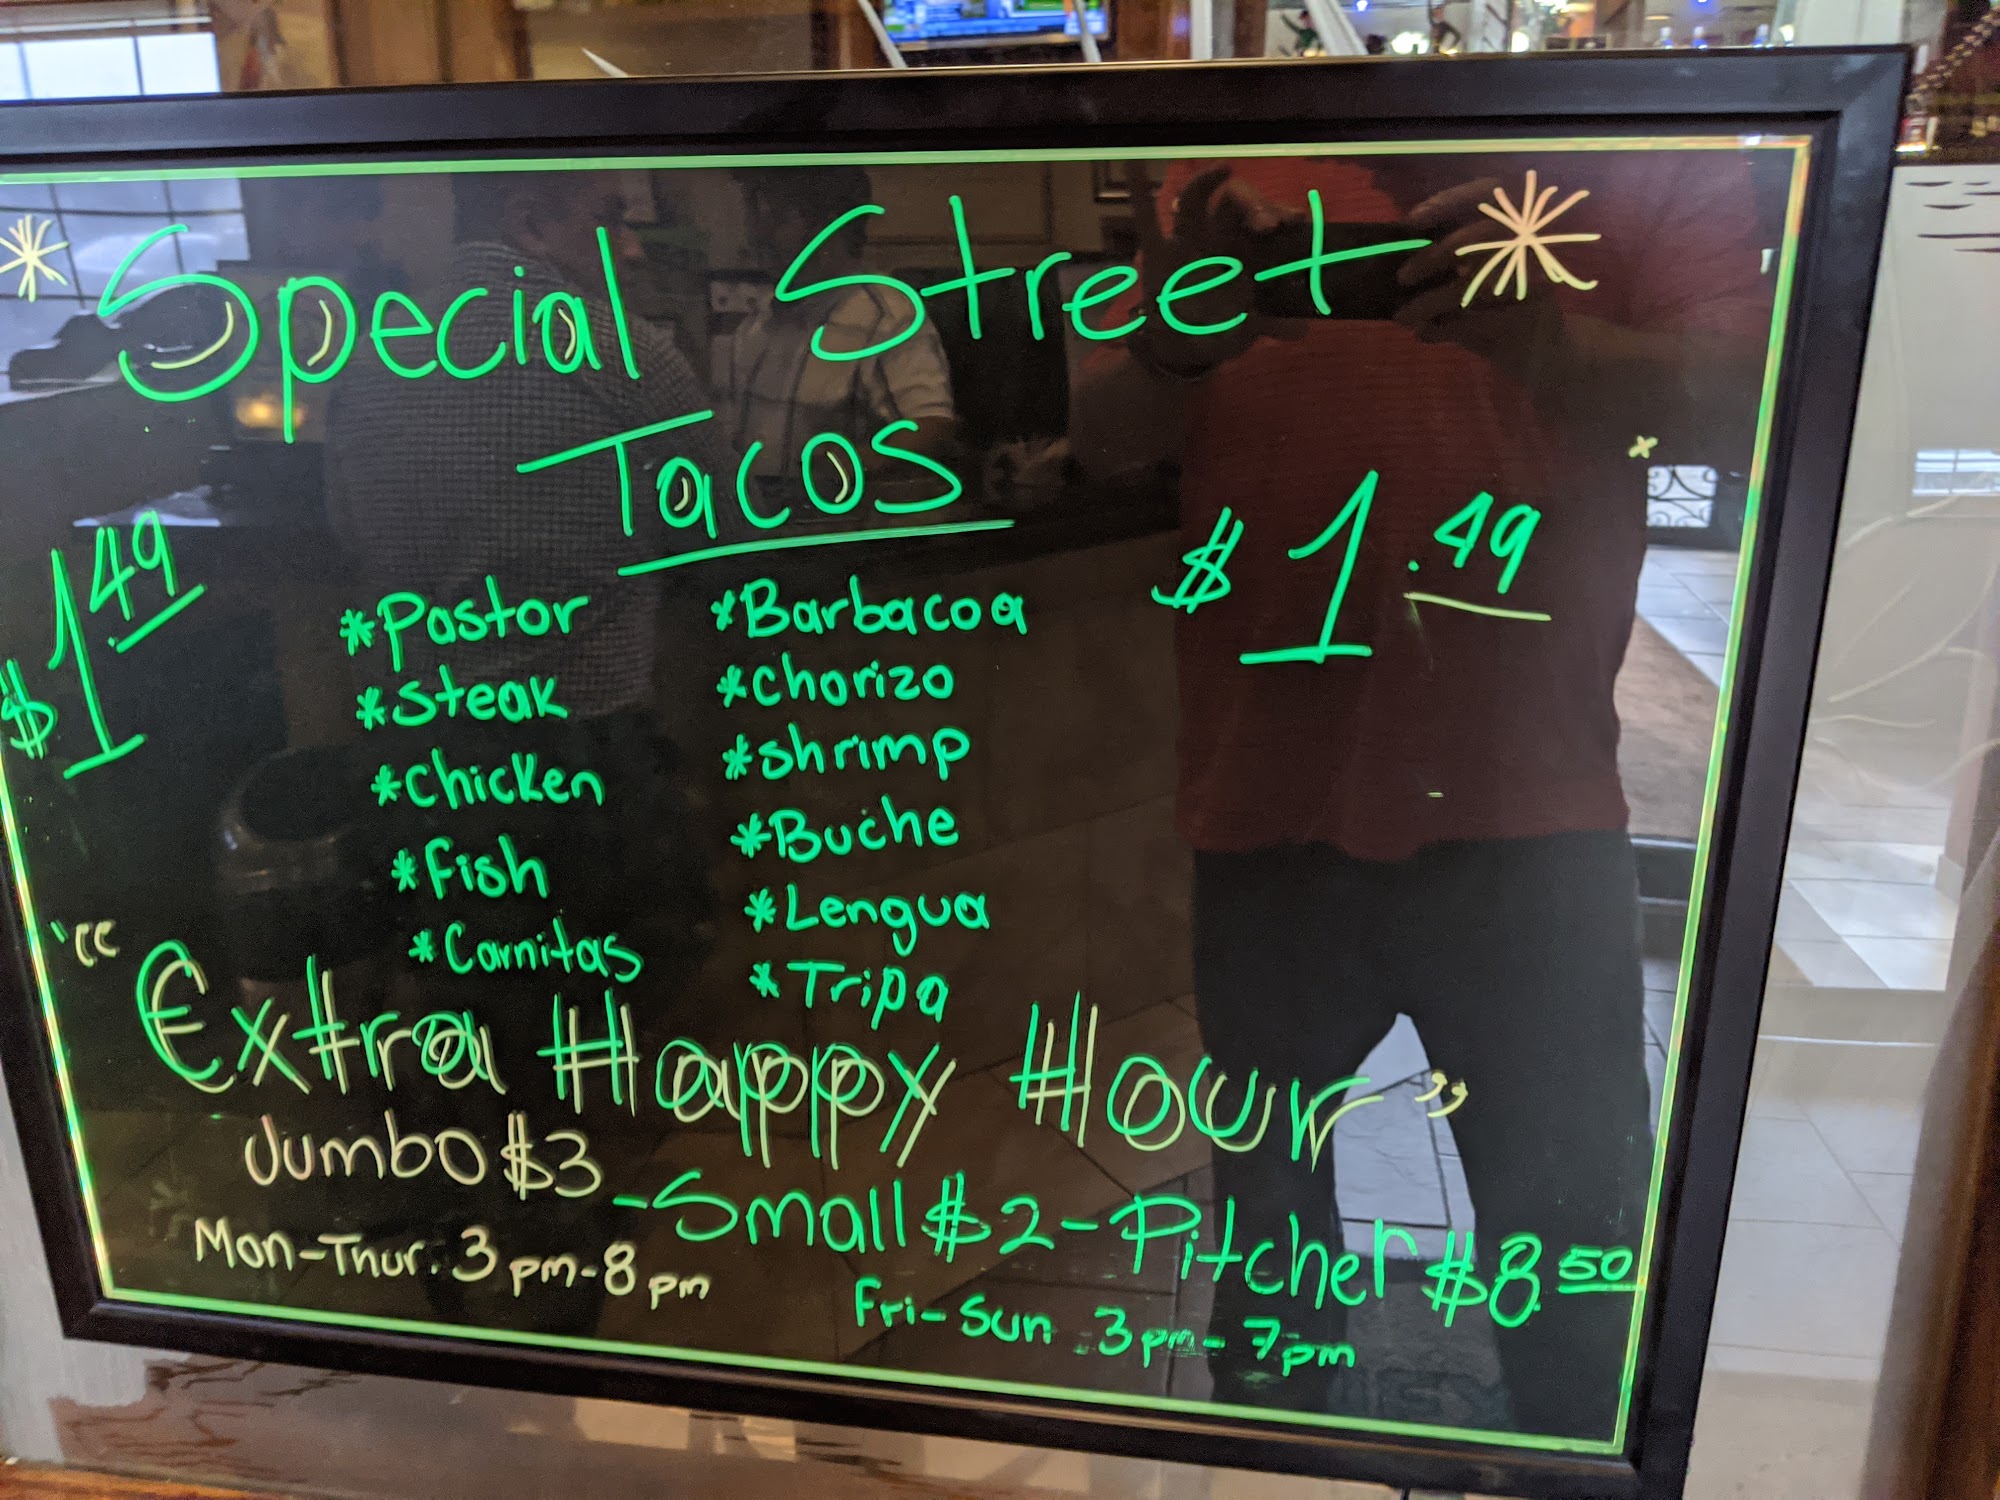 * Special Street *
Tacos
$1.49
$1.49
*Pastor
*Steak
*Chicken
*Fish
*Carnitas
*Barbacoa
*Chorizo
*Shrimp
*Buche
*Lengua
*Tripa
"Extra Happy Hour"
Jumbo $3 -Small $2-Pitcher $8.50
Mon-Thur. 3pm-8pm
Fri-Sun 3pm-7pm